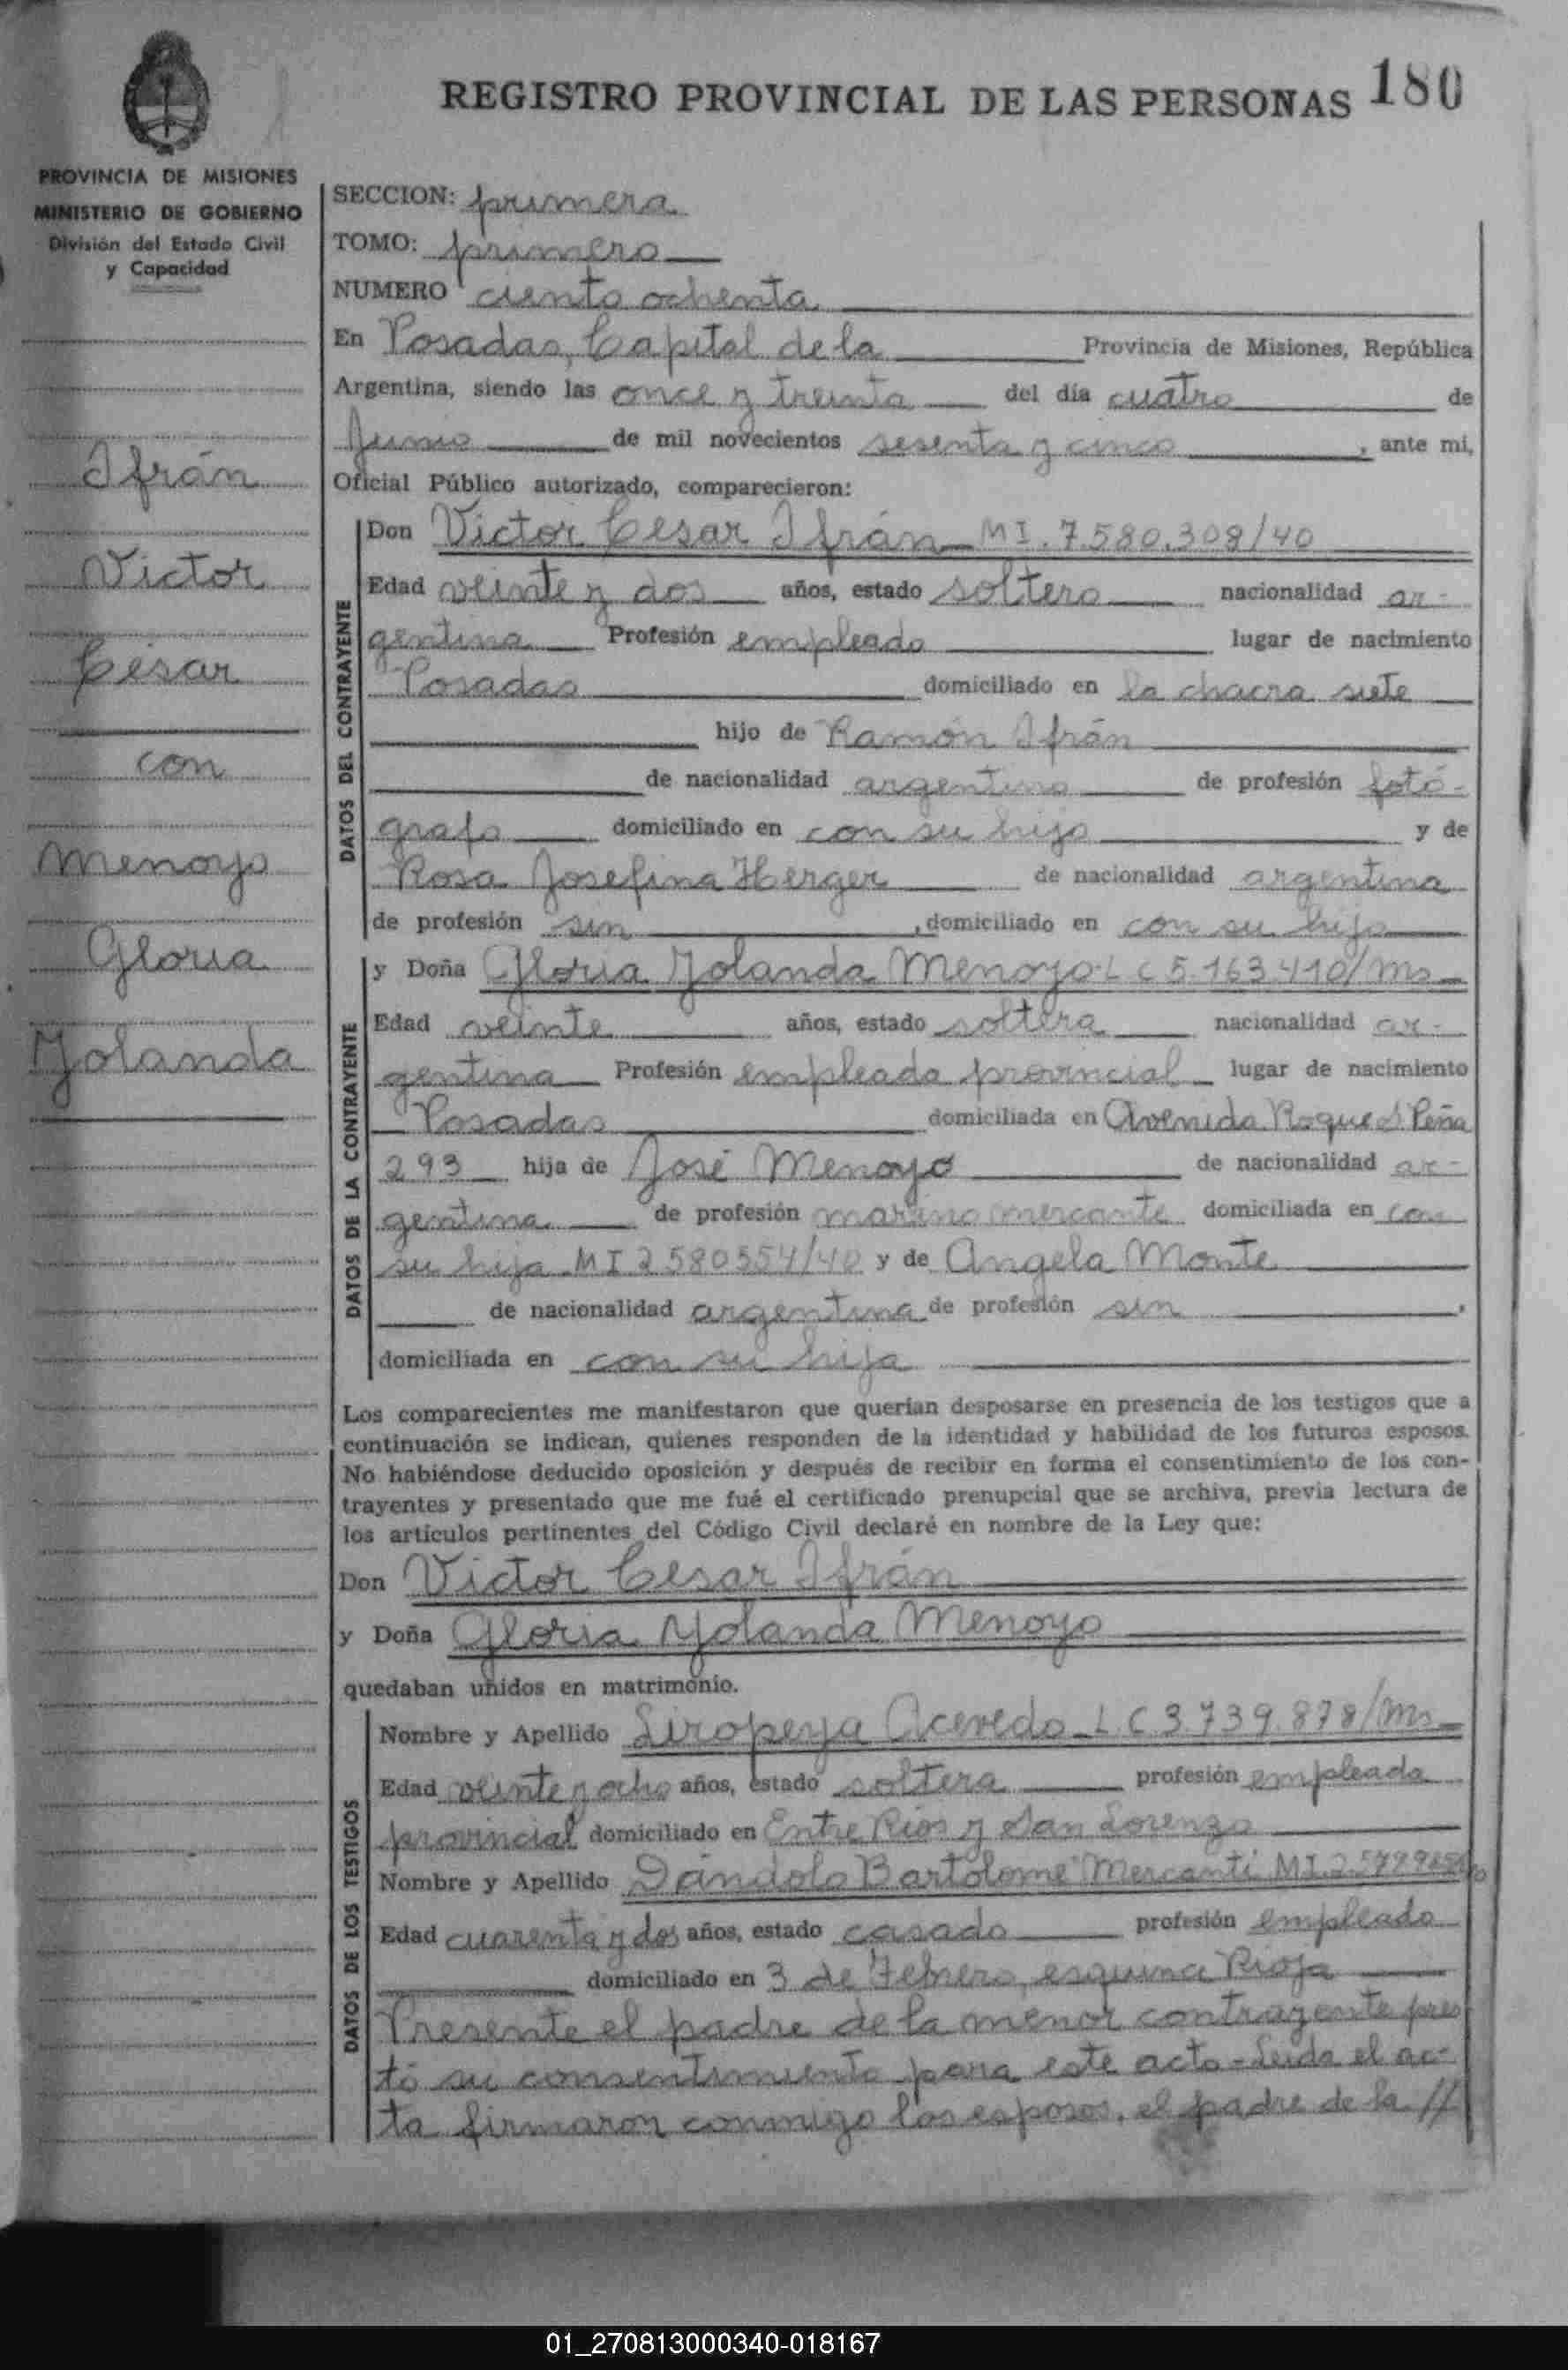 REGISTRO PROVINCIAL DE LAS PERSONAS 180
PROVINCIA DE MISIONES
MINISTERIO DE GOBIERNO
División del Estado Civil
y Capacidad
Ifrán
Victor
César
con
Menoyo
Gloria
Yolanda
SECCION: primera
TOMO: primero
NUMERO ciento ochenta
En Posadas, Capital de la Provincia de Misiones, República
Argentina, siendo las once y treinta del día cuatro de
Junio de mil novecientos sesenta y cinco, ante mi,
Oficial Público autorizado, comparecieron:
DATOS DEL CONTRAYENTE
Don Victor Cesar Ifrán MI. 7.580.308/40
Edad veinte y dos años, estado soltero nacionalidad ar-
gentina Profesión empleado lugar de nacimiento
Posadas domiciliado en la chacra siete
hijo de Ramón Ifrán
de nacionalidad argentino de profesión fotó-
grafo domiciliado en con su hijo y de
Rosa Josefina Herger de nacionalidad argentina
de profesión sin, domiciliado en con su hijo
DATOS DE LA CONTRAYENTE
y Doña Gloria Yolanda Menoyo L C 5.163.410/Ms
Edad veinte años, estado soltera nacionalidad ar-
gentina Profesión empleada provincial lugar de nacimiento
Posadas domiciliada en Avenida Roque S Peña
293 hija de José Menoyo de nacionalidad ar-
gentina de profesión marino mercante domiciliada en con
su hija MI 2580554/40 y de Angela Monte
de nacionalidad argentina de profesión sin,
domiciliada en con su hija
Los comparecientes me manifestaron que querían desposarse en presencia de los testigos que a
continuación se indican, quienes responden de la identidad y habilidad de los futuros esposos.
No habiéndose deducido oposición y después de recibir en forma el consentimiento de los con-
trayentes y presentado que me fué el certificado prenupcial que se archiva, previa lectura de
los artículos pertinentes del Código Civil declaré en nombre de la Ley que:
Don Victor Cesar Ifrán
y Doña Gloria Yolanda Menoyo
quedaban unidos en matrimonio.
DATOS DE LOS TESTIGOS
Nombre y Apellido Liropeya Acevedo L C 3.739.878/Ms
Edad veinte y ocho años, estado soltera profesión empleada
provincial domiciliado en Entre Rios y San Lorenzo
Nombre y Apellido Dándolo Bartolomé Mercanti MI.
Edad cuarenta y dos años, estado casado profesión empleado
domiciliado en 3 de Febrero esquina Rioja
Presente el padre de la menor contrayente pres
tó su consentimiento para este acto - Leida el ac-
ta firmaron conmigo los esposos, el padre de la //
01_270813000340-018167